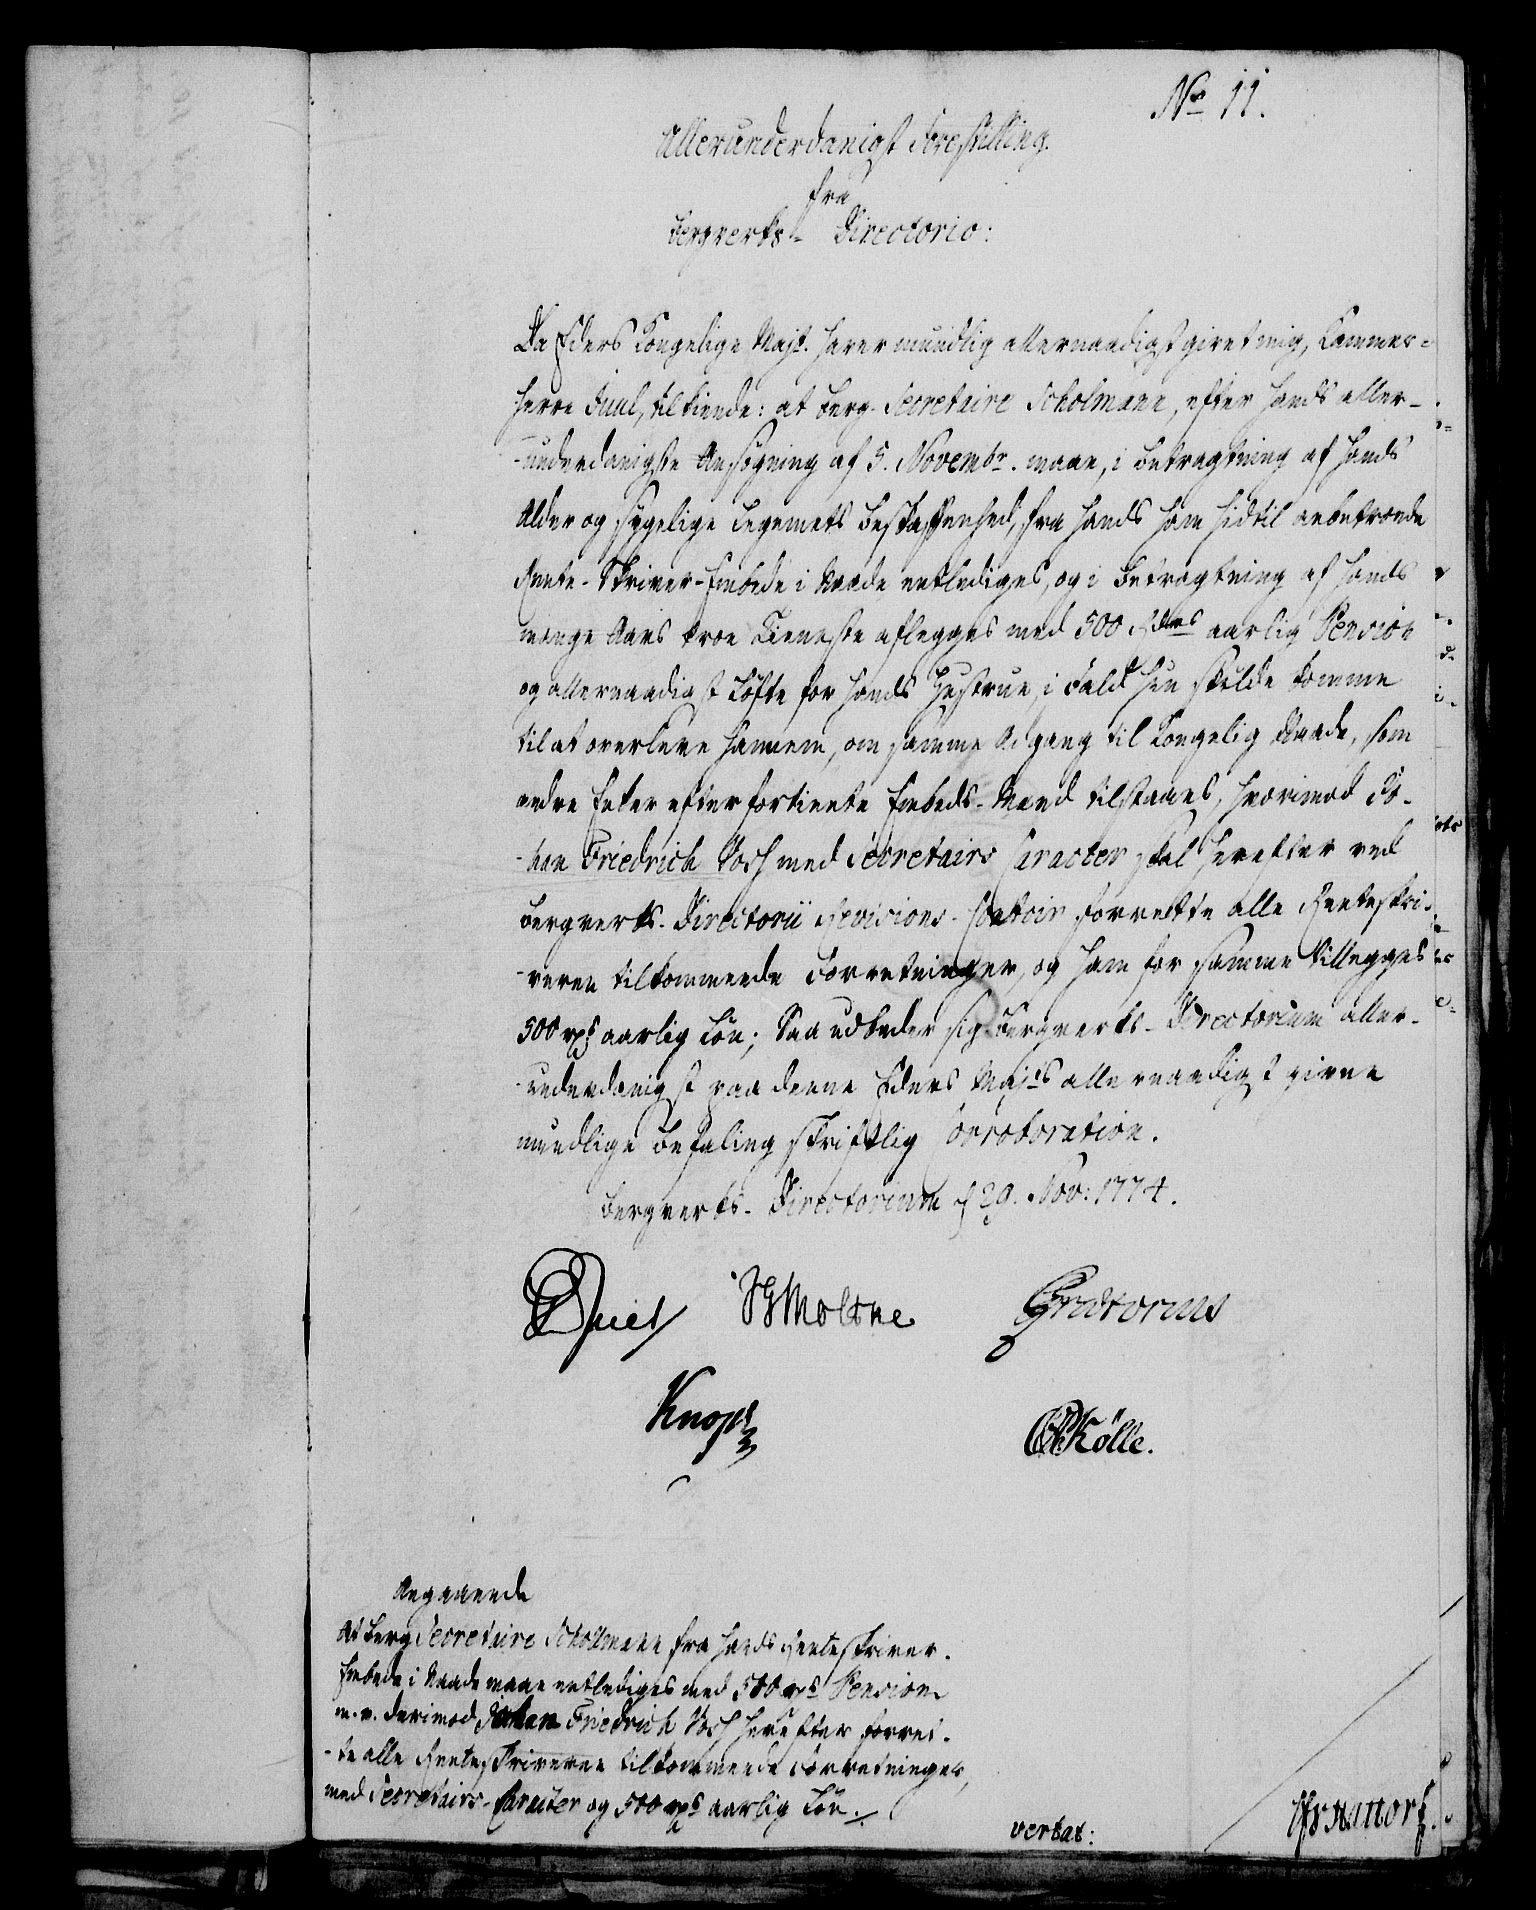 No 11.
Allerunderdanigst Forestilling.
fra
Bergverks- Directorio:
Da Eders Kongelige Majt. haver mundlig allernaadigst givet mig, Kammer-
herre Juul, tilkiende: at Berg-Secretaire Scholmann, efter hands aller-
-underdanigste Ansøgning af 5. Novembr. maae, i betragtning af hands
Alder og sygelige Legemets Beskaffenhed, fra hands ham hidtil anbetroede
Rente-Skriver-Embede i Naade entlediges, og i Betragtning af hands
mange Aars troe Tieneste aflegges med 500 Rdrs aarlig Pension
og allernaadigst Løfte for hands Hustrue, i Fald hun skulde komme
til at overleve hannem, om samme Adgang til Kongelig Naade, som
andre Enker efter fortiente Embeds-Mænd tilstaaes, hvorimod Jo-
-han Friedrich Vosh med Secretairs Caracter skal herefter ved
Bergverks-Directorii Revisions-Contoir forrette alle Renteskri-
-veren tilkommende Forretninger, og ham for samme tillegges
500 rdrs aarlig Løn; Saa udbeder sig Bergverks-Directorium aller-
-underdanigst paa denne Eders Majts allernaadigst givne
mundlige Befaling skriftlig Corroboration.
Bergverks-Directorium d 29. Nov: 1774.
Juel JGMoltke
Knoph Kølle.
Angaaende
At Berg Secretaire Schollmann fra hands Renteskriver-
Embede i Naade maae entlediges med 500 rdrs Pension
m.v. derimod Johan Friedrich Vosh herefter forret-
-te alle Renteskriveren tilkommende Forretninger,
med Secretairs-Caracter og 500 rdrs aarlig Løn./.
vertat: